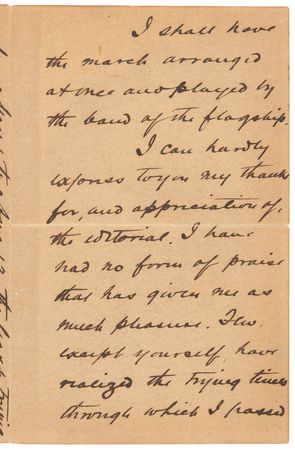 I shall have
the march arranged
at once and played by
the band of the flagship.
I can hardly
express to you my thanks
for, and appreciation of,
the editorial. I have
had no form of praise
that has given me as
much pleasure. Few,
except yourself, have
realized the trying times
through which I passed